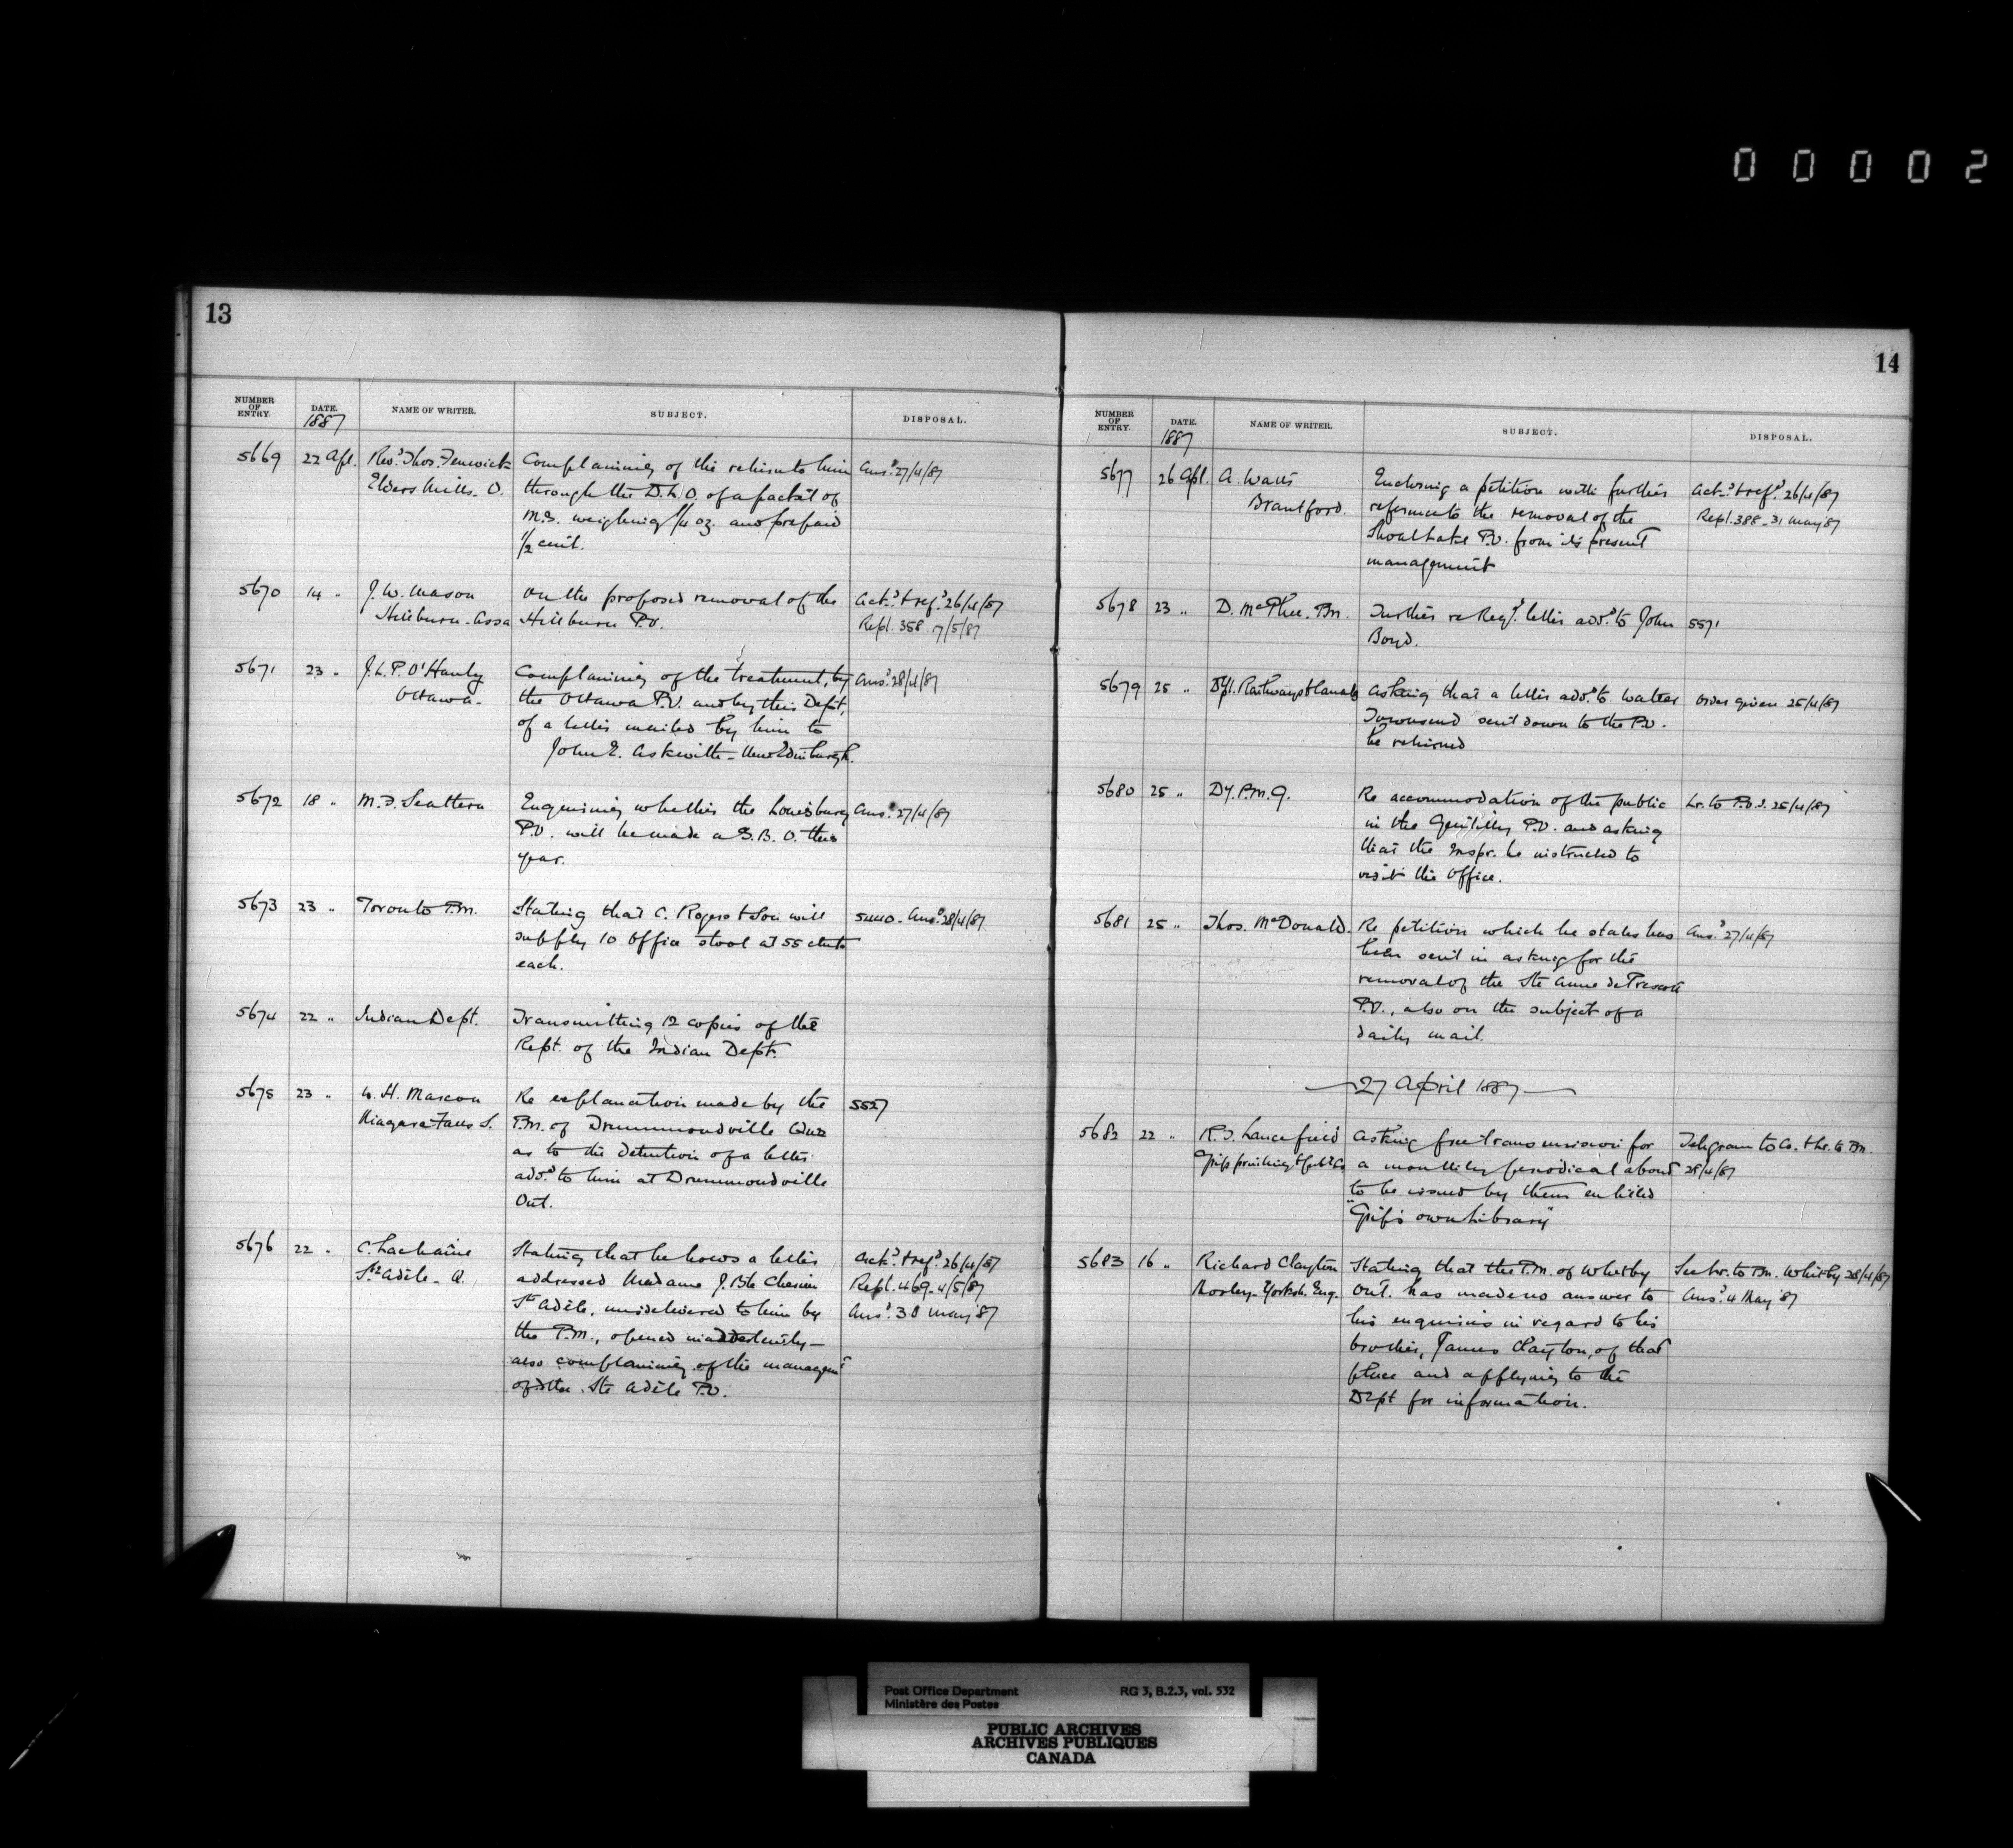 00002
13
NUMBER OF ENTRY. DATE. 1887 NAME OF WRITER. SUBJECT. DISPOSAL.
5669 22 Apl. Revd. Thos. Fenwick Complaining of the return to him Ansd. 27/4/87
Elders Mills. O. through the D.L.O. of a packet of
M.S. weighing 1/4 oz. and prepaid
1/2 cent.
5670 14 " J. W. Mason On the proposed removal of the Ackd. & refd. 26/4/87
Hillburn - Assa Hillburn P.O. Repl. 358. 7/5/87
5671 23 " J. L. P. O'Hanly Complaining of the treatment, by Ansd. 28/4/87
Ottawa - the Ottawa P.O. and by this Dept,
of a letter mailed by him to
John E. Askwith - New Edinburgh.
5672 18 " M. D. Enquiring whether the Louisburg Ansd. 27/4/87
P.O. will be made a S.B.O. this
year.
5673 23 " Toronto P.M. Stating that C. Rogers & Son will 5440 - Ansd. 28/4/87
supply 10 office stool at 55 cents
each.
5674 22 " Indian Dept. Transmitting 12 copies of the
Rept. of the Indian Dept.
5675 23 " W. H. Marcon Re explanation made by the 5527
Niagara Falls S. P.M. of Drummondville Que
as to the detention of a letter
add. to him at Drummondville
Ont.
5676 22 " C. Lachaîne Stating that he hows a letter Ackd. & refd. 26/4/87
Ste Adèle - Q. addressed Madame J. Bte Repl. 469 - 4/5/87
Ste Adèle, undelivered to him by Ansd. 30 May '87
the P.M., opened inadvertently -
also complaining of the managemt
of the Ste Adèle P.O.
14
NUMBER OF ENTRY. DATE. 1887 NAME OF WRITER. SUBJECT. DISPOSAL.
5677 26 Apl. A. Watts Enclosing a petition with further Ackd. & refd. 26/4/87
Brantford. reference to the removal of the Repl. 388 - 31 May '87
Shoal Lake P.O. from its present
management
5678 23 " D. McPhee. P.M. Further re Regd. letter add. to John 5571
Boyd.
5679 25 " Dept. Railways & Canals Asking that a letter add. to Walter Order given 25/4/87
Townsend sent down to the P.O.
be returned
5680 25 " Dy. P.M.G. Re accommodation of the public Lr. to P.O.I. 25/4/87
in the Gentilly P.O. and asking
that the Inspr. be instructed to
visit the office.
5681 25 " Thos. McDonald. Re petition which he states has Ansd. 27/4/87
been sent in asking for the
removal of the Ste Anne de Prescott
P.O., also on the subject of a
daily mail.
27 April 1887
5682 22 " R. T. Lancefield Asking free transmission for Telegram to Co. & Lr. to P.M.
Grip printing & Pub. Co. a monthly periodical about 28/4/87
to be issued by them entitled
"Grip's own Library"
5683 16 " Richard Clayton Stating that the P.M. of Whitby See Lr. to P.M. Whitby 28/4/87
Morley - Yorksh. Eng. Ont. has made no answer to Ansd. 4 May '87
his enquiries in regard to his
brother, James Clayton, of that
place and applying to the
Dept for information.
Post Office Department RG 3, B.2.3, vol. 532
Ministère des Postes
PUBLIC ARCHIVES
ARCHIVES PUBLIQUES
CANADA